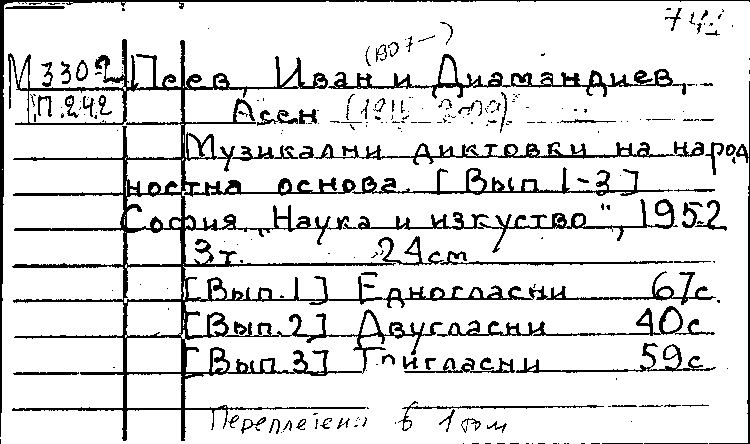 741
(1907-)
М 3302 Пеев, Иван и Диамандиев,
П.242 Асен (1915-2009)
Музикални диктовки на народ
ностна основа. [Вып 1-3]
София „Наука и изкуство", 1952
3 т. 24 см
[Вып.1] Едногласни 67с.
[Вып.2] Двугласни 40с
[Вып.3] Тригласни 59с
Переплетено в 1 том